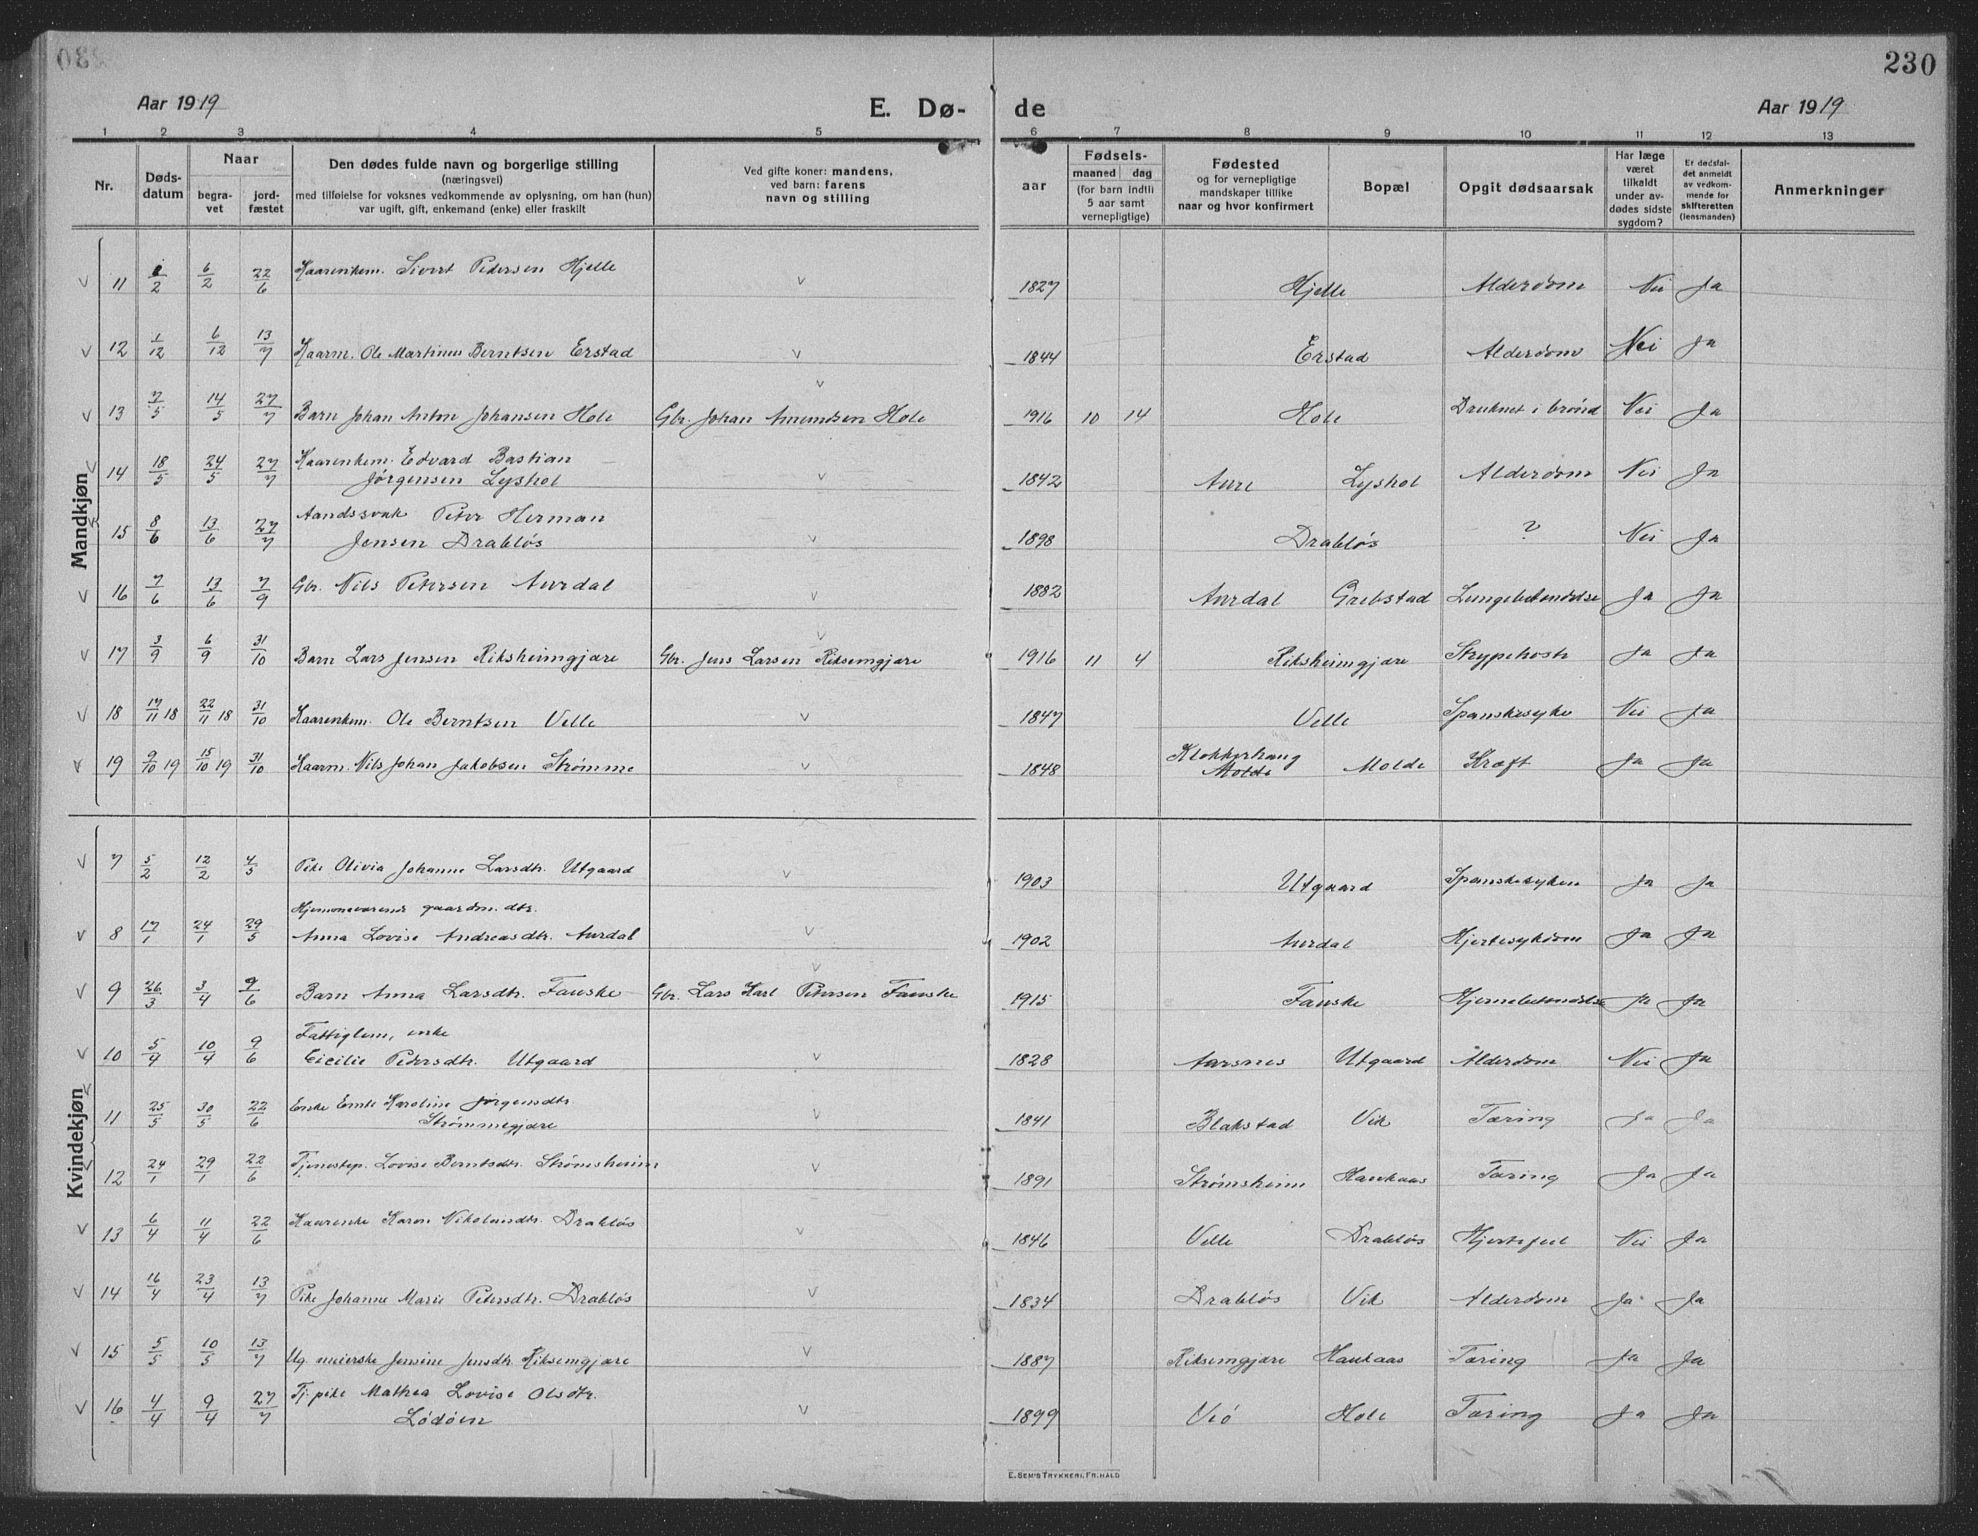 230
Aar 1919
E. Dø- de
Aar 1919
1 2 3 4 5 6 7 8 9 10 11 12 13
Nr.
Døds-
datum
Naar
begra-
vet
jord-
fæstet
Den dødes fulde navn og borgerlige stilling
(næringsvei)
med tilføielse for voksnes vedkommende av oplysning, om han (hun)
var ugift, gift, enkemand (enke) eller fraskilt
Ved gifte koner: mandens,
ved barn: farens
navn og stilling
aar
Fødsels-
maaned dag
(for barn indtil
5 aar samt
vernepligtige)
Fødested
og for vernepligtige
mandskaper tillike
naar og hvor konfirmert
Bopæl
Opgit dødsaarsak
Har læge
været
tilkaldt
under av-
dødes sidste
sygdom?
Er dødsfal-
det anmeldt
av vedkom-
mende for
skifteretten
(lensmanden)
Anmerkninger
Mandkjøn
v 11 /2 6/2 22/6 Kaarenkem. Sivert Pedersen Hjelle v 1827 Hjelle Alderdom Nei Ja
v 12 1/12 6/12 13/7 Kaarm. Ole Martinus Berntsen Erstad v 1844 Erstad Alderdom Nei Ja
v 13 7/5 14/5 27/7 Barn Johan Anton Johansen Hole Gbr. Johan Amundsen Hole v 1916 10 14 Hole Druknet i brønd Nei Ja
v 14 18/5 24/5 27/7 Kaarenkem. Edvard Bastian
Jørgensen Lyshol v 1842 Aure Lyshol Alderdom Nei Ja
v 15 8/6 13/6 27/7 Aandssvak Peter Herman
Jensen Drabløs v 1898 Drabløs ? Nei Ja
v 16 7/6 13/6 7/9 Gbr. Nils Petersen Aurdal v 1882 Aurdal Grebstad Lungebetændelse Ja Ja
v 17 3/9 6/9 31/10 Barn Lars Jensen Riksheimgjære Gbr. Jens Larsen Riksemgjære v 1916 11 4 Riksheimgjære Strypehoste Ja Ja
v 18 17/11 18 22/11 18 31/10 Kaarenkem. Ole Berntsen Velle v 1847 Velle Spanskesyke Nei Ja
v 19 9/10 19 15/10 19 31/10 Kaarm. Nils Johan Jakobsen Strømme v 1848 Klokkerhaug
Molde Molde Kræft Ja Ja
Kvindekjøn
v 7 5/2 12/2 4/5 Pike Olivia Johanne Larsdtr. Utgaard v 1903 Utgaard Spanskesyken Ja Ja
Hjemmeværende gaardm. dtr.
v 8 17/1 24/1 29/5 Anna Lovise Andreasdtr. Aurdal v 1902 Aurdal Hjertesykdom Ja Ja
v 9 26/3 3/4 9/6 Barn Anna Larsdtr. Fauske Gbr. Lars Karl Petersen Fauske v 1915 Fauske Hjernebetændelse Ja Ja
Fattiglem, enke
v 10 5/4 10/4 9/6 Cicilie Pedersdtr. Utgaard v 1828 Aarsnes Utgaard Alderdom Nei Ja
v 11 25/5 30/5 22/6 Enke Karoline Jørgensdtr.
Strømmegjære v 1841 Blakstad Vik Tæring Ja Ja
v 12 24/1 29/1 22/6 Tjenestep. Lovise Berntsdtr. Strømsheim v 1891 Strømsheim Haukaas Tæring Ja Ja
v 13 6/4 11/4 22/6 Kaarenke Karen Nikolaidtr. Drabløs v 1846 Velle Drabløs Hjertefeil Nei Ja
v 14 16/4 23/4 13/7 Pike Johanne Marie Petersdtr. Drabløs v 1834 Drabløs Vik Alderdom Ja Ja
v 15 5/5 10/5 13/7 Ug. meierske Jensine Jensdtr. Riksemgjære v 1887 Riksemgjære Haukaas Tæring Ja Ja
v 16 4/4 9/4 27/7 Tj. pike Mathea Lovise Olsdtr.
Lødøen v 1899 Veø Hole Tæring Ja Ja
E. SEM'S TRYKKERI, FR.HALD